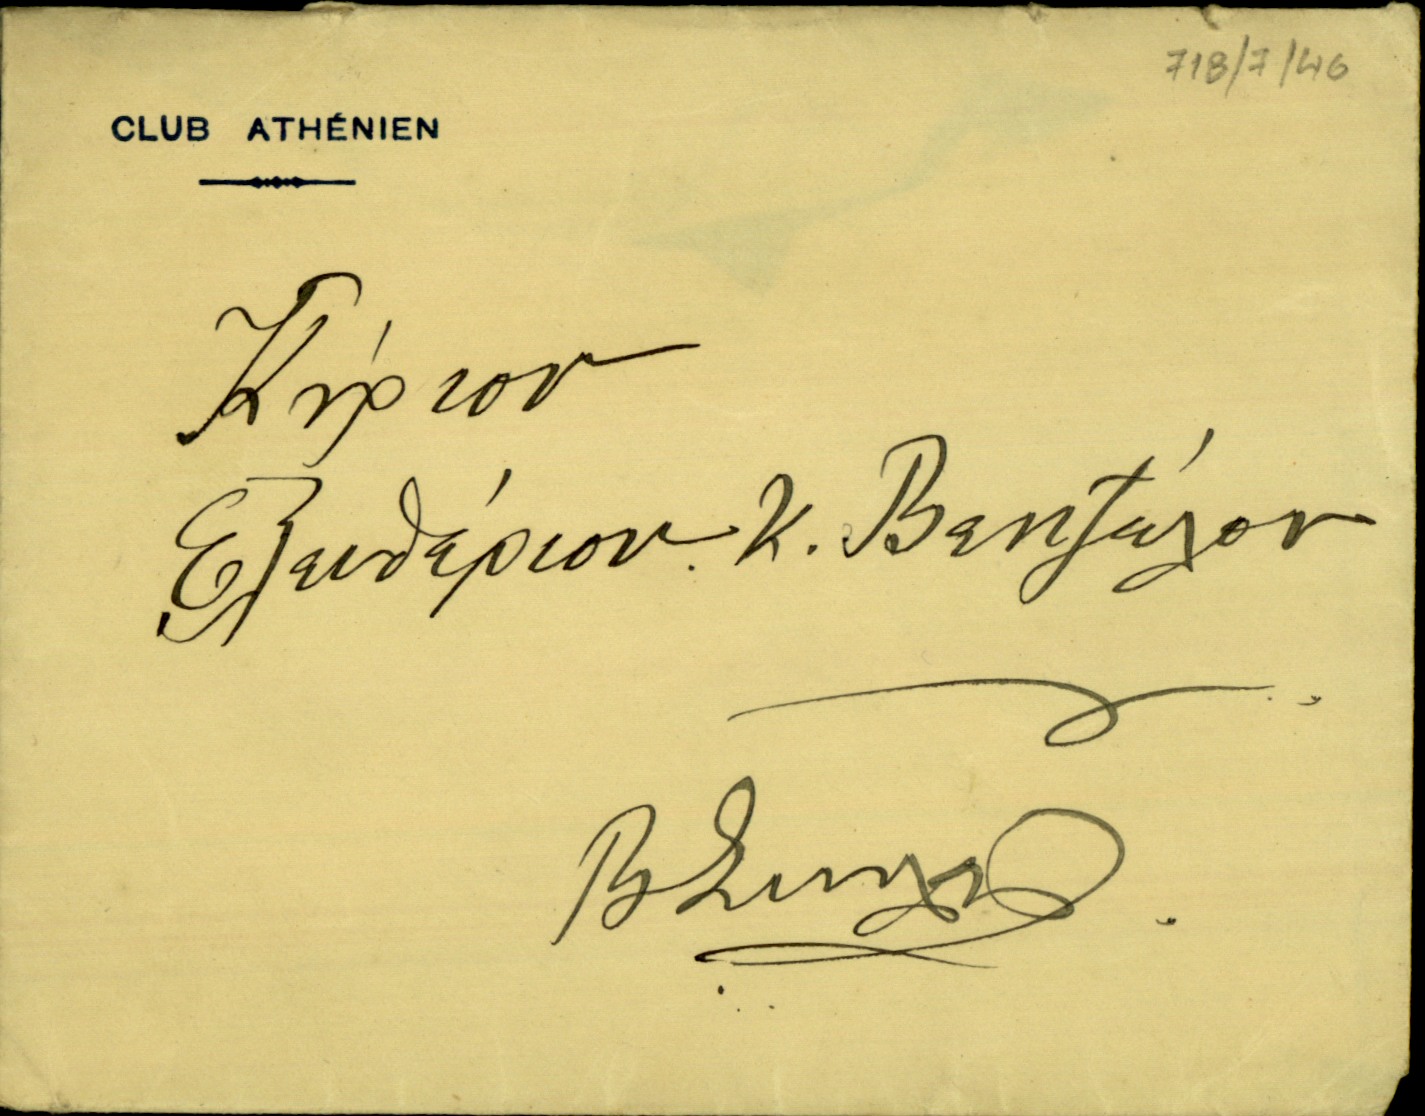 718/7/46
CLUB ATHÉNIEN
Κύριον
Ελευθέριον Κ. Βενιζέλον